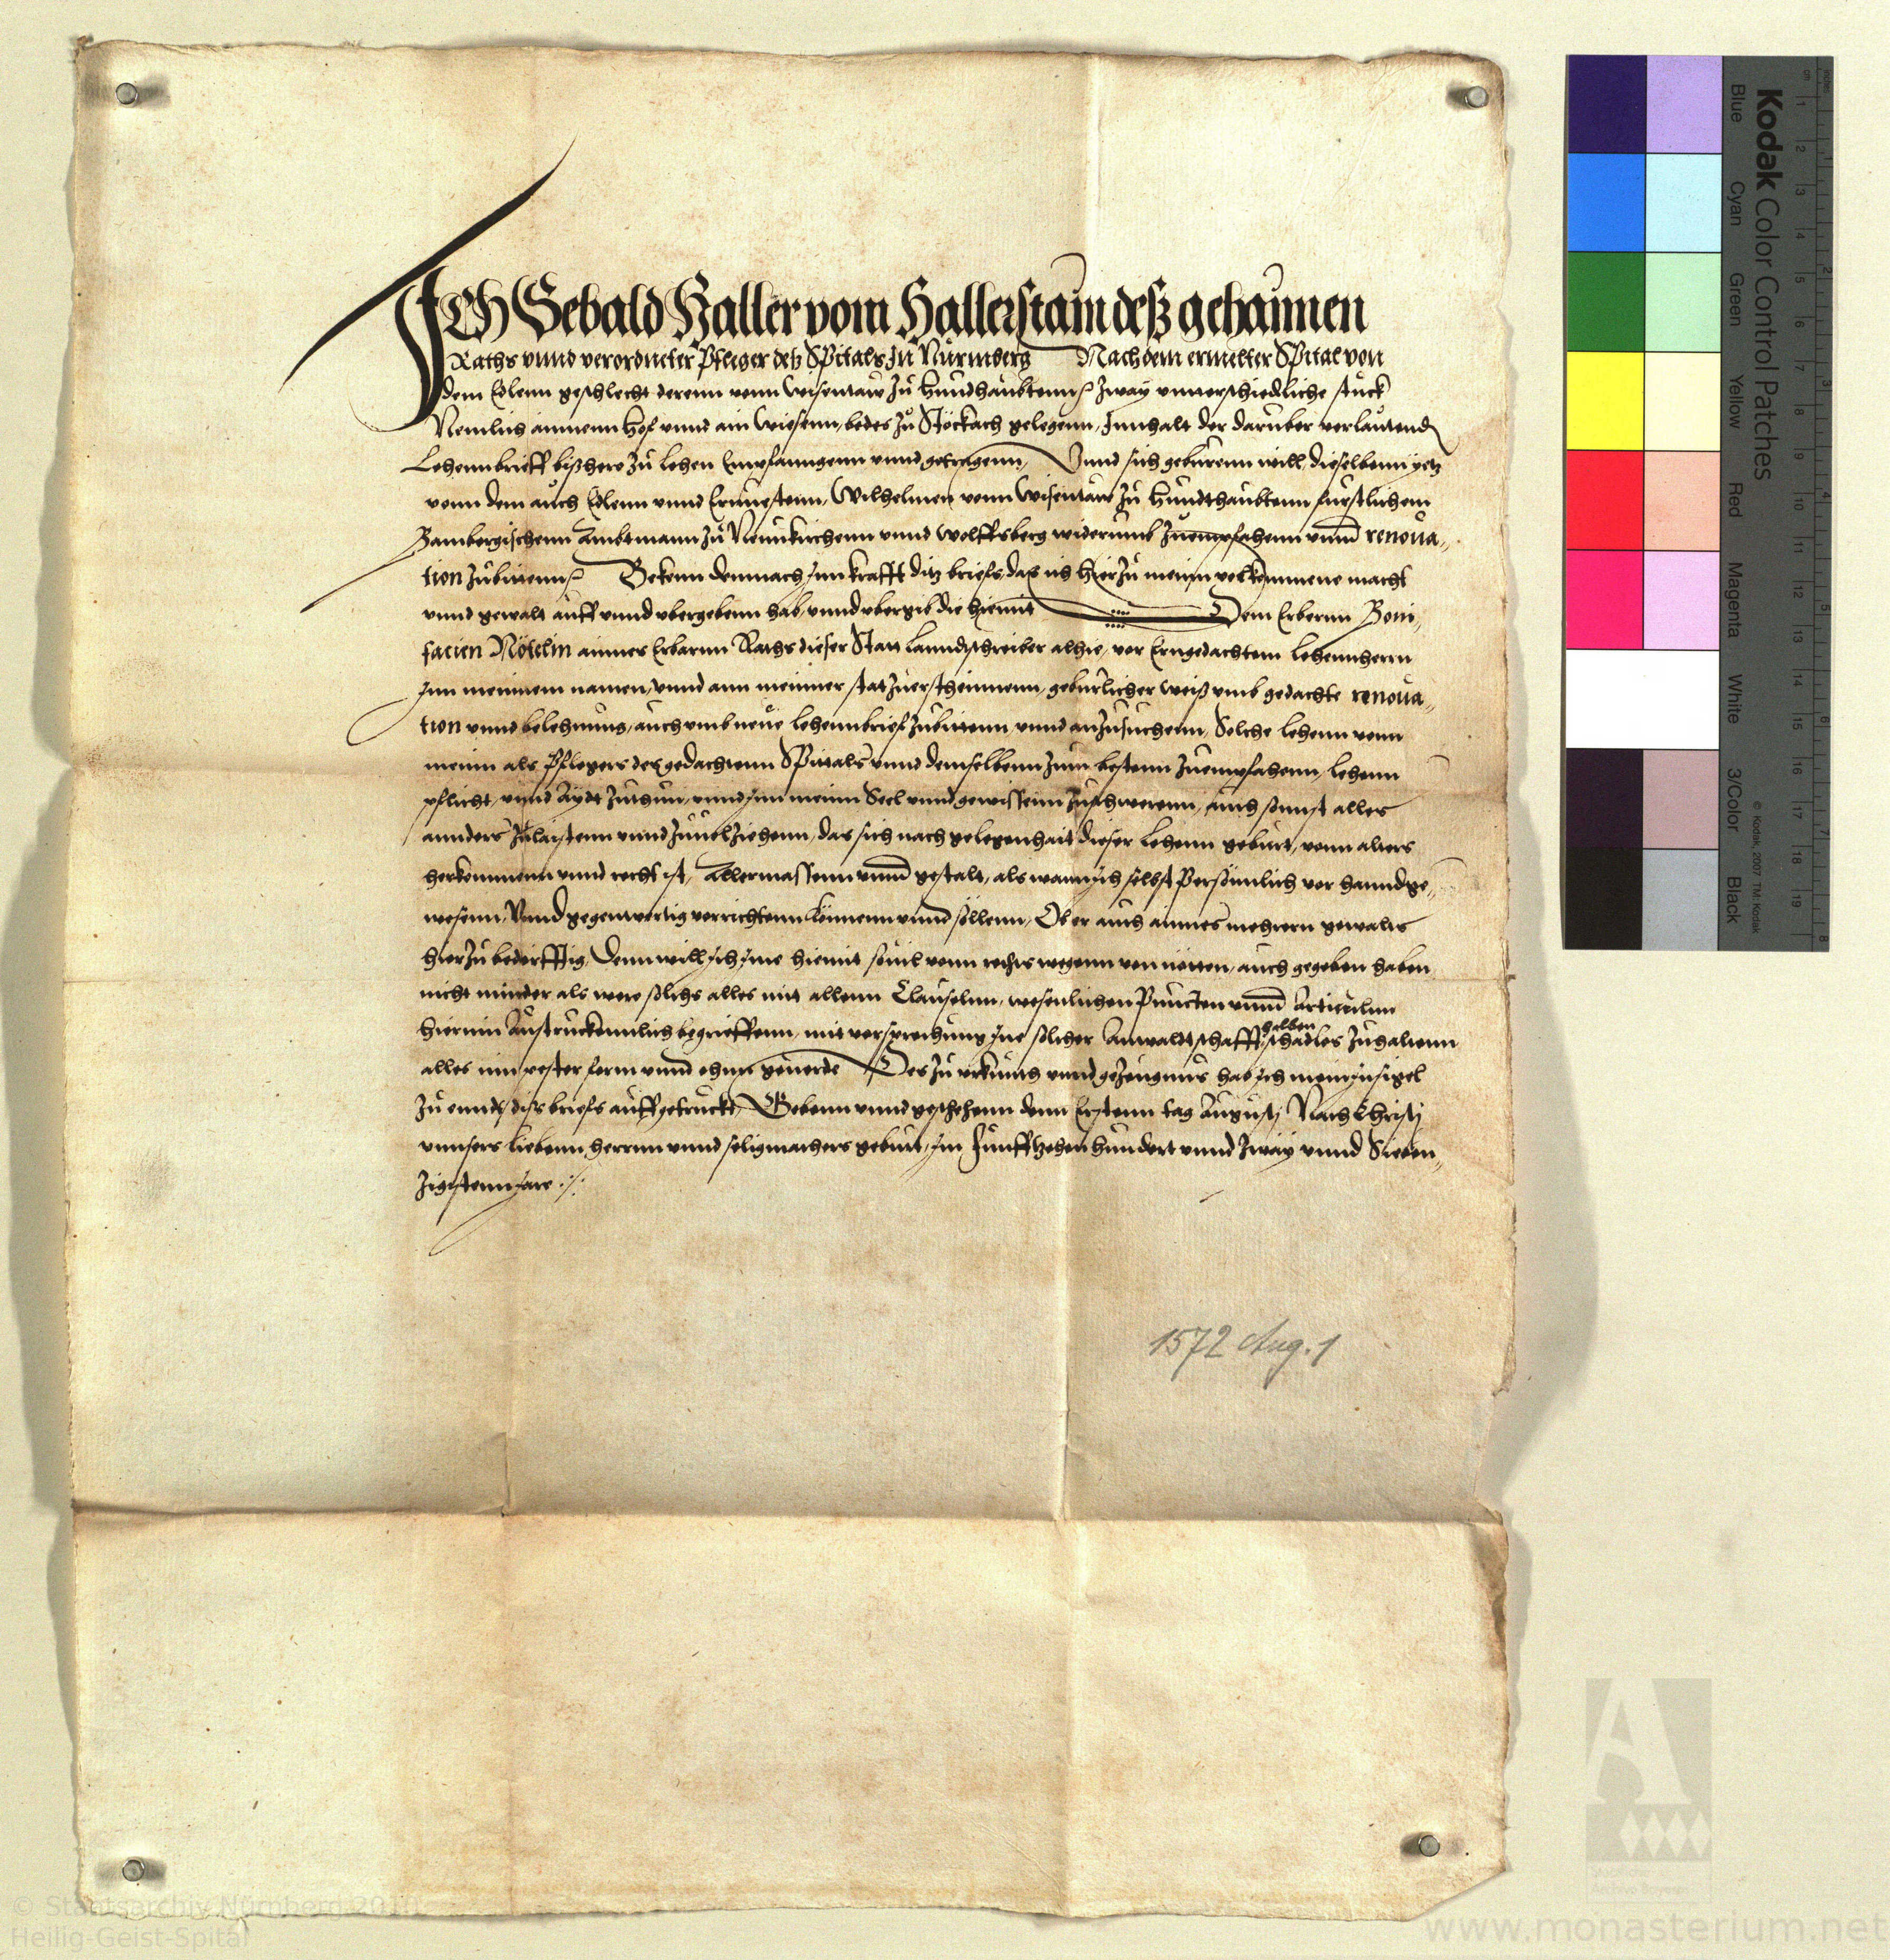 ICH Sebald Haller vom Hallerstain deß gehaimen
Raths vnnd verordneter Pfleger deß Spitals In Nürmberg Nachdem ermelter Spital von
dem Edlenn geschlecht derenn vonn Wisentaw zu Hundshaubtenn zway vnnterschiedliche stuck
Nemlich ainnenn Hof vnnd ain Wiesenn, bedes zu Stöckach gelegenn, Innhalt der daruber verlautend
Lehennbrieff bißhero zu lehen Empfanngenn vnnd getragenn, Vnnd sich geburenn will, dieselbenn yetz
vonn dem auch Edlenn vnnd Ernnestenn, Wilhelmen vonn Wisentaw zu Hundthaubtenn furstlichem
Bambergischenn Ambtmann zu Neunkirchenn vnnd Wolffsberg widerumb zuempfahenn vnnd renoua,,
tion zubittenn Bekenn demnach Inn krafft ditz briefs, das ich hierzu meinn volkommene macht
vnnd gewalt auff vnnd vbergebenn hab, vnnd vbergib die hiemit Dem Erbernn Boni,,
facien Nöttelin ainnes Erbarnn Raths dieser Statt Lanndtschreiber alhie, vor Erngedachtem Lehennherrn
Inn meinnem namen, vnnd ann meinner stat zuerscheinnenn, geburlicher weiß vmb gedachte renoua,,
tion vnnd belehnung, auch vmb neue lehennbrief zubittenn, vnnd anzusuchenn, Solche lehenn vonn
meinn als Pflegers des gedachtenn Spittals vnnd demselbenn zum bestenn zuempfahenn, lehenn
pflicht, vnnd Aydt zuthun, vnnd Inn meinn Seel vnnd gewissenn zuschwerenn, auch sonnst alles
annders zulaistenn vnnd zuuolziehenn, das sich nach gelegenhait dieser Lehenn geburt, vonn alters
herkommenn vnnd recht ist, Allermassenn vnnd gestalt, als wann Ich selbst Persönnlich vor hannd ge,,
wesenn, Vnnd gegenwertig verrichtenn könnenn vnnd söllenn, Ob er auch ainnes mehrern gewalts
hierzu bedörfftig, Denn will Ich Ime hiemit souil vonn rechts wegenn vonnötten, auch gegeben haben
nicht minder als were solichs alles mit allenn Clauselnn, wesenlichen Puncten vnnd Articulnn
hierinn Austruckennlich begrieffenn, mit versprechung Ine solcher Anwaldtschafft halben schadlos zuhaltenn
alles inn vester form vnnd ohne geuerde Des zu vrkunth vnnd gezeugnus hab Ich mein Insigel
zu ennde dits briefs auffgetruckt, Gebenn vnnd geschehenn denn Erstenn tag Augustj Nach Christj
vnnsers liebenn herrnn vnnd seligmachers geburt, Im Funffzehen hundert vnnd zway vnnd Sieben,,
zigstenn Jare
1572 Aug. 1
Kodak Color Control Patches
Blue Cyan Green Yellow Red Magenta White 3/Color Black
© Kodak, 2007 TM: Kodak
© Staatsarchiv Nürnberg 2010
Heilig-Geist-Spital
www.monasterium.net